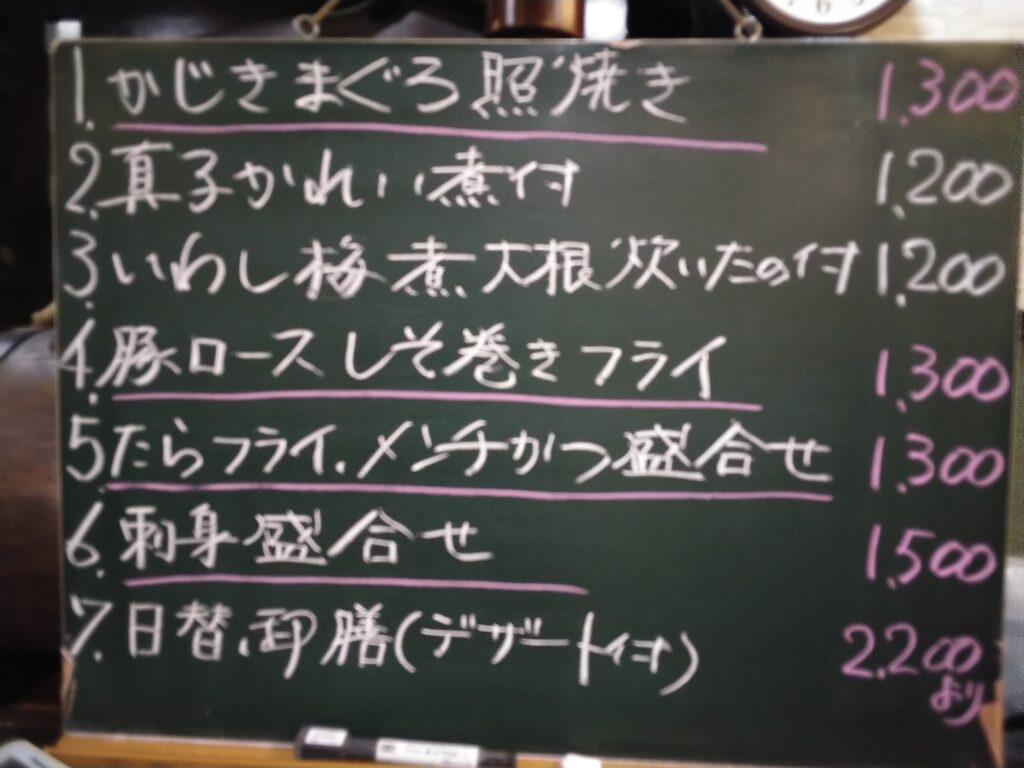 1. かじきまぐろ照焼き 1,300
2. 真子かれい煮付 1,200
3. いわし梅煮大根炊いたの付 1,200
4. 豚ロースしそ巻きフライ 1,300
5. たらフライ、メンチかつ盛合せ 1,300
6. 刺身盛合せ 1,500
7. 日替、御膳(デザート付) 2,200
より